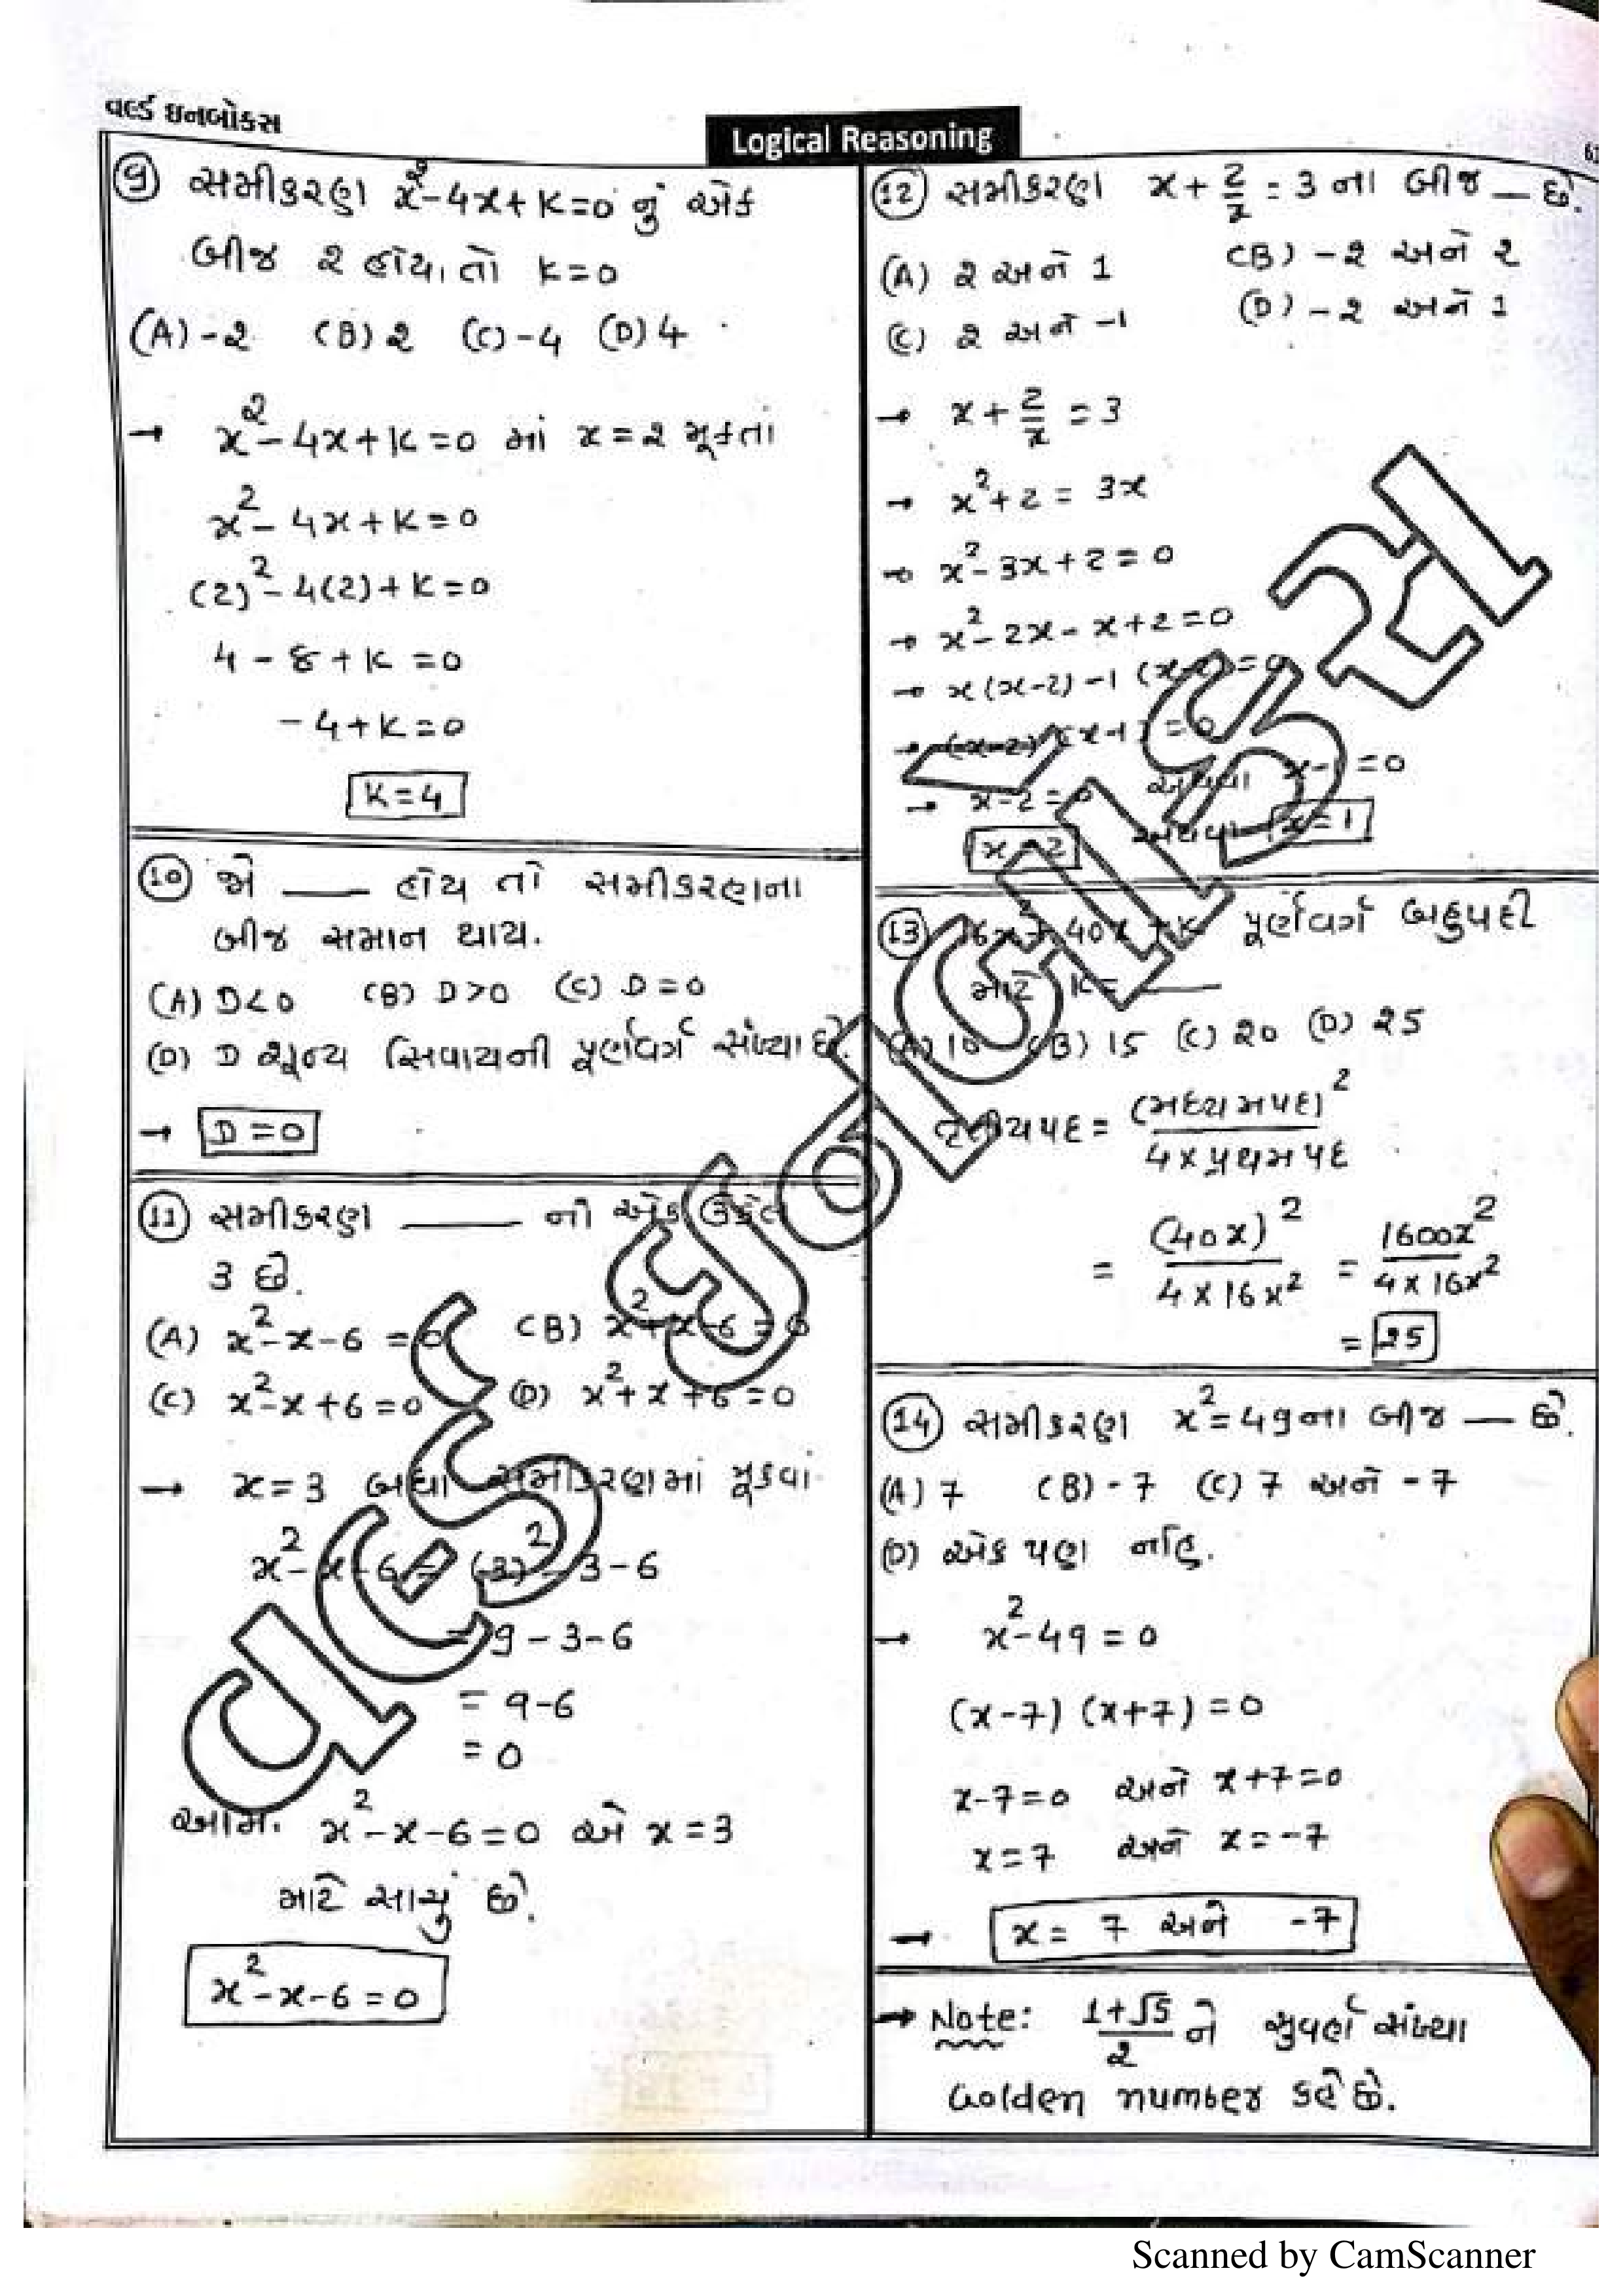 વર્લ્ડ ઇનબોક્સ
Logical Reasoning
(9) સમીકરણ x² - 4x + K = 0 નું એક
બીજ 2 હોય, તો K = 0
(A) -2 (B) 2 (C) -4 (D) 4
→ x² - 4x + K = 0 માં x = 2 મૂકતાં
x² - 4x + K = 0
(2)² - 4(2) + K = 0
4 - 8 + K = 0
- 4 + K = 0
K = 4
(10) જો ____ હોય તો સમીકરણના
બીજ સમાન થાય.
(A) D < 0 (B) D > 0 (C) D = 0
(D) D શૂન્ય સિવાયની પૂર્ણવર્ગ સંખ્યા છે.
→ D = 0
(11) સમીકરણ ____ નો એક ઉકેલ
3 છે.
(A) x² - x - 6 = 0 (B) x² + x - 6 = 0
(C) x² - x + 6 = 0 (D) x² + x + 6 = 0
→ x = 3 બધા સમીકરણમાં મૂકવાં
x² - x - 6 = (3)² - 3 - 6
= 9 - 3 - 6
= 9 - 6
= 0
આમ. x² - x - 6 = 0 એ x = 3
માટે સાચું છે.
x² - x - 6 = 0
(12) સમીકરણ x + 2/x = 3 ના બીજ __ છે.
(A) 2 અને 1 (B) -2 અને 2
(C) 2 અને -1 (D) -2 અને 1
→ x + 2/x = 3
→ x² + 2 = 3x
→ x² - 3x + 2 = 0
→ x² - 2x - x + 2 = 0
→ x(x-2) -1 (x-2) = 0
→ (x-2) (x-1) = 0
→ x-2 = 0 અથવા x-1 = 0
x = 2 અથવા x = 1
(13) 16x² + 40x + K પૂર્ણવર્ગ બહુપદી
માટે K = ____
(A) 10 (B) 15 (C) 20 (D) 25
તૃતીયપદ = (મધ્યમપદ)² / 4 × પ્રથમપદ
= (40x)² / 4 × 16x² = 1600x² / 4 × 16x²
= 25
(14) સમીકરણ x² = 49 ના બીજ __ છે.
(A) 7 (B) -7 (C) 7 અને -7
(D) એક પણ નહિ.
→ x² - 49 = 0
(x-7) (x+7) = 0
x-7 = 0 અને x+7 = 0
x = 7 અને x = -7
→ x = 7 અને -7
→ Note: 1+√5 / 2 ને સુવર્ણ સંખ્યા
Golden number કહે છે.
Scanned by CamScanner